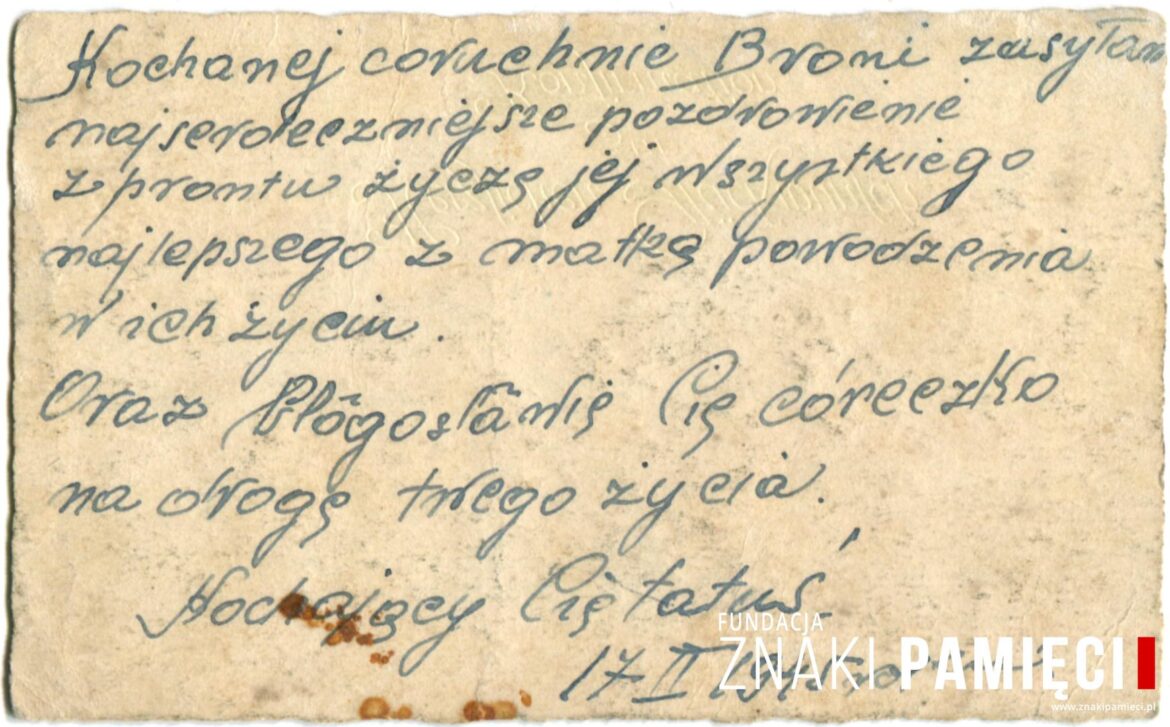 Kochanej coruchnie Broni zasyłam
najserdeczniejsze pozdrowienie
z prontu życzę jej wszystkiego
najlepszego z matką powodzenia
w ich życiu.
Oraz błogosławię Cię córeczko
na drogę twego życia.
Kochający Cię tatuś
17 II
FUNDACJA
ZNAKI PAMIĘCI
www.znakipamieci.pl